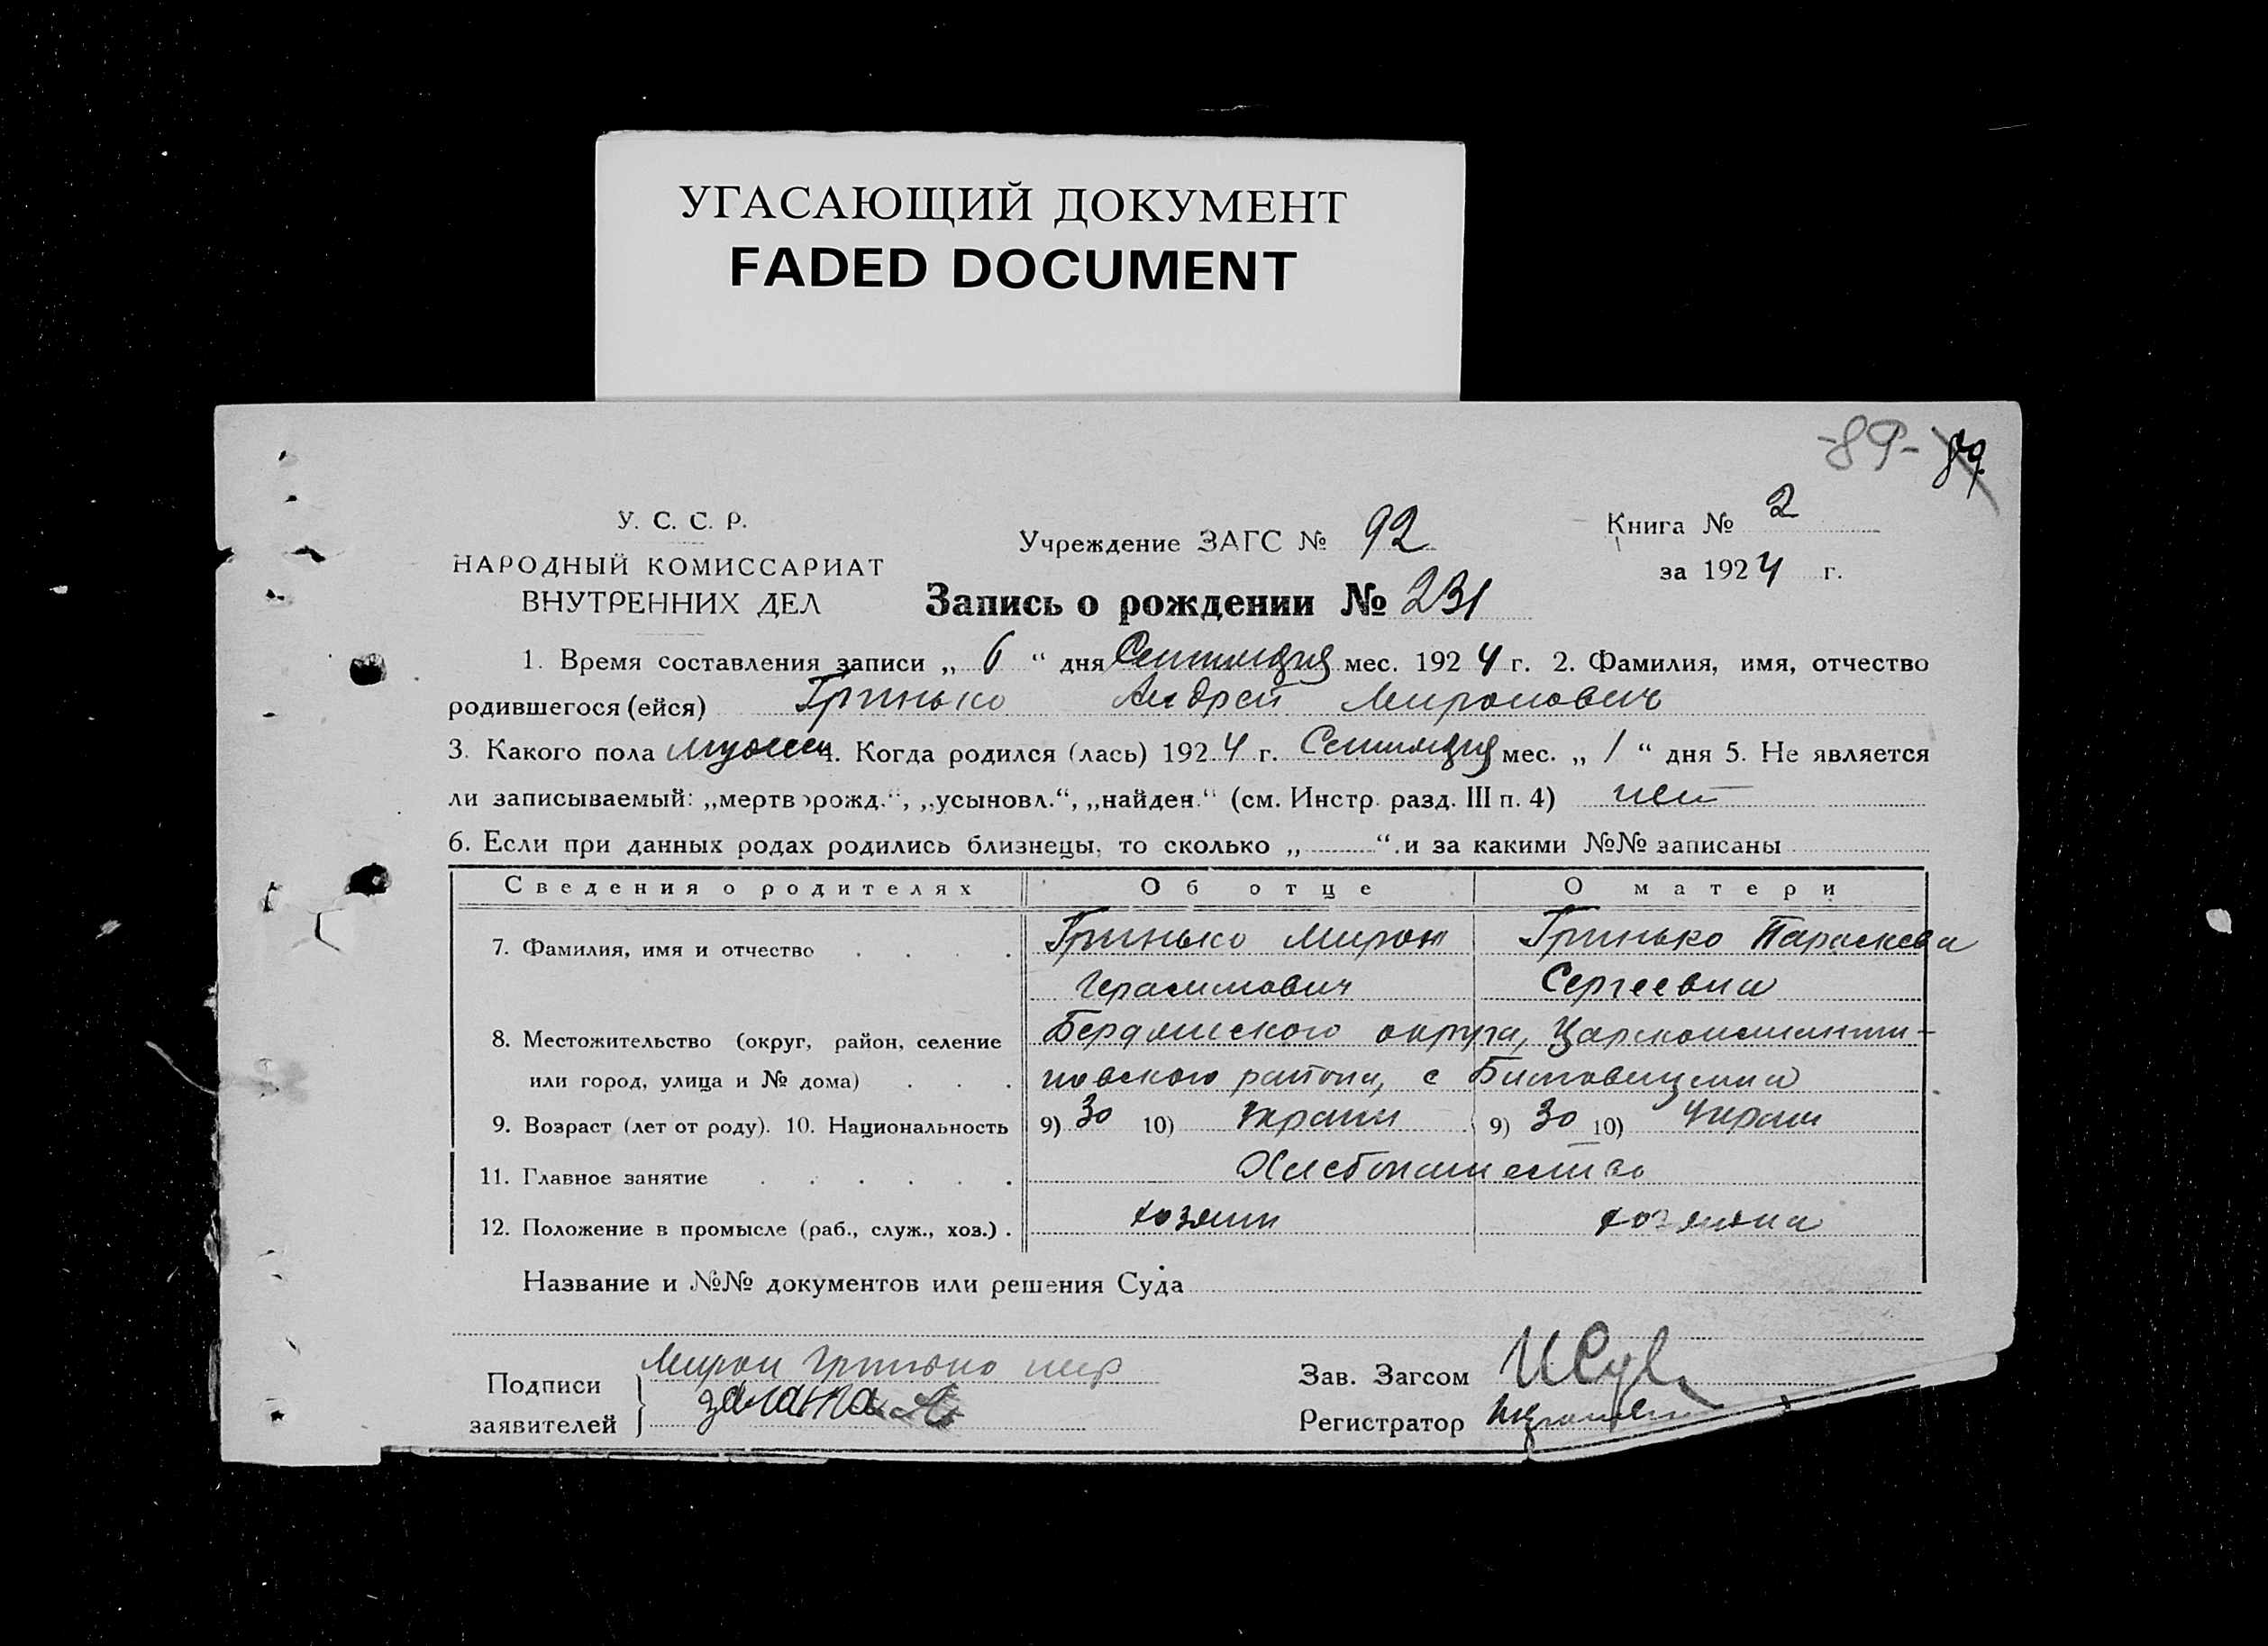 УГАСАЮЩИЙ ДОКУМЕНТ
FADED DOCUMENT
-89- 89
У. С. С. Р.
НАРОДНЫЙ КОМИССАРИАТ
ВНУТРЕННИХ ДЕЛ
Учреждение ЗАГС № 92
Книга № 2
за 1924 г.
Запись о рождении № 231
1. Время составления записи „ 6 “ дня Сентября мес. 1924 г. 2. Фамилия, имя, отчество
родившегося (ейся) Гринько Андрей Миронович
3. Какого пола мужск 4. Когда родился (лась) 1924 г. Сентября мес. „ 1 “ дня 5. Не является
ли записываемый: „мертворожд.“, „усыновл.“, „найден.“ (см. Инстр. разд. III п. 4) нет
6. Если при данных родах родились близнецы, то сколько „ “ и за какими №№ записаны
Сведения о родителях Об отце О матери
7. Фамилия, имя и отчество Гринько Мирон Гринько Параскева
Герасимович Сергеевна
8. Местожительство (округ, район, селение Бердянского округа, Цареконстанти-
или город, улица и № дома) новского района, с
9. Возраст (лет от роду). 10. Национальность 9) 30 10) Украин 9) 30 10) Украин
11. Главное занятие Хлебопашество
12. Положение в промысле (раб., служ., хоз.) хозяин хозяйка
Название и №№ документов или решения Суда
Подписи Мирон Гринько
заявителей
Зав. Загсом
Регистратор